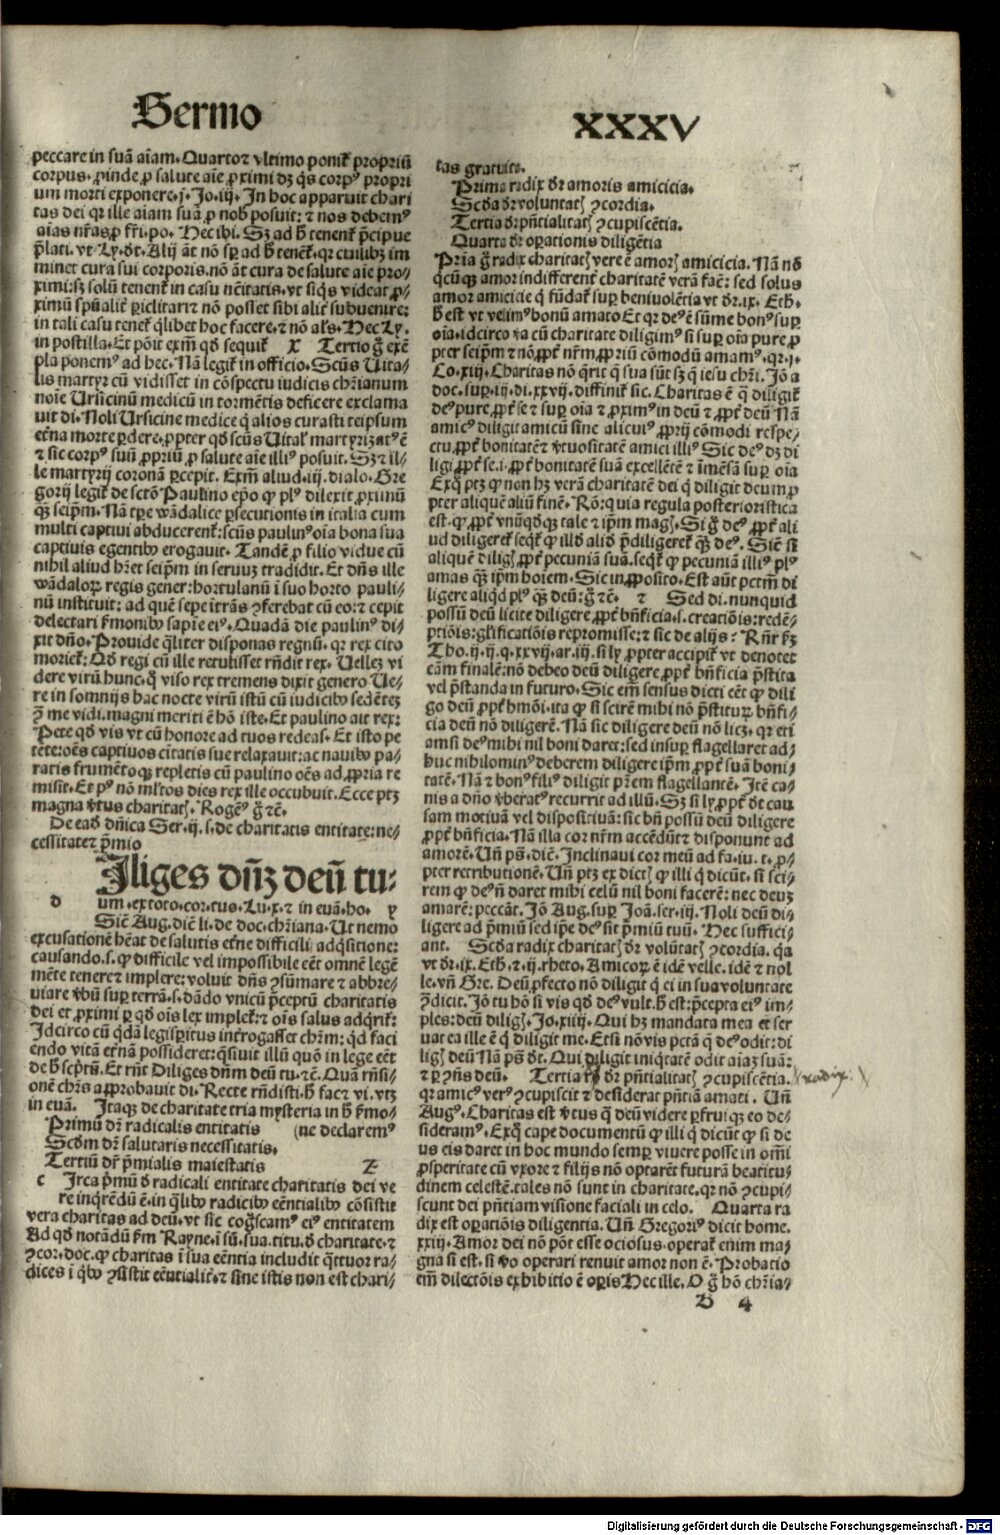 Sermo
XXXV
peccare in suã aĩam. Quarto ⁊ vltimo poniť propriũ
corpus. ꝓinde ꝓ salute aĩe ꝓximi dꝫ q̃s corpꝰ propri
um morti exponere. j. Jo. iij. In hoc apparuit chari
tas dei qꝛ ille aiam suã ꝓ nob̃ posuit: ⁊ nos debemꝰ
aias nr̃as ꝓ fr̃i. po. Hec ibi. Sꝫ ad h̃ tenent̃ p̃cipue
p̃lati. vt Ly. dt̃. Alij ãt nõ sꝑ ad h̃ tenẽt̃. qꝛ cuilibꝫ im
minet cura sui corporis. nõ ãt cura de salute aĩe pro⸗
ximi: sꝫ solũ tenent̃ in casu nẽcitatis. vt siq̃s videat ꝓ⸗
ximũ spũalit̃ ꝑiclitari ⁊ nõ posset sibi alit̃ subuenire:
in tali casu tenet̃ q̃libet hoc facere. ⁊ nõ als̃. Hec Ly.
in postilla. Et põit exm̃ qd̃ sequit̃ X Tertio g̃ exẽ
pla ponemꝰ ad hec. Nã legit̃ in officio. Scũs Uita⸗
lis martyr cũ vidisset in cõspectu iudicis chr̃ianum
noĩe Ursicinũ medicũ in tormẽtis deficere exclama
uit di. Noli Ursicine medice q̃ alios curasti teipsum
et̃na morte ꝑdere. ꝓpter qd̃ scũs Uital̃ martyrizatꝰ ẽ
⁊ sic corpꝰ suũ ꝓpriũ ꝓ salute aĩe illiꝰ posuit. Sꝫ ⁊ il⸗
le martyrij coronã ꝑcepit. Exm̃ aliud. iij. dialo. Gre
gorij legit̃ de sctõ Paulino ep̃o q̃ plꝰ dilexit ꝓximũ
qꝫ seip̃m. Nã tꝑe wãdalice ꝑsecutionis in italia cum
multi captiui abducerent̃: scũs paulinꝰ oĩa bona sua
captiuis egentibꝰ erogauit. Tandẽ ꝓ filio vidue cũ
nihil aliud hr̃et seip̃m in seruuꝫ tradidit. Et dñs ille
wãdaloꝝ regis gener: hortulanũ ĩ suo horto pauli⸗
nũ instituit: ad quẽ sepe ĩtrãs ꝯferebat cũ eo: ⁊ cepit
delectari ẜmonibꝰ sapĩe eiꝰ. Quadã die paulinꝰ di⸗
xit dño. Prouide q̃liter disponas regnũ. qꝛ rex cito
moriet̃. Qd̃ regi cũ ille retulisset rñdit rex. Uelleꝫ vi
dere virũ hunc. q̃ viso rex tremens dixit genero Ue⸗
re in somnijs hac nocte virũ istũ cũ iudicibꝰ sedẽteꝫ
ꝯ̃ me vidi. magni meriti ẽ hõ iste. Et paulino ait rex:
Pete qd̃ vis vt cũ honore ad tuos redeas. Et isto pe
tẽte: oẽs captiuos ciĩtatis sue relaxauit: ac nauibꝰ pa⸗
ratis frumẽtoqꝫ repletis cũ paulino oẽs ad ꝓpria re
misit. Et pꝰ nõ ml̃tos dies rex ille occubuit. Ecce ptꝫ
magna v̾tus charitat̃. Rogemꝰ g̃ ⁊c̃.
De eadẽ dñica Ser. ij. s. de charitatis entitate: ne⸗
cessitate ⁊ p̃mio
Jliges dñꝫ deũ tu⸗
d um. ex toto. cor. tuo. Lu. x. ⁊ in euã. ho. y
Sic̃ Aug. dic̃ li. de doc. chr̃iana. Ut nemo
excusationẽ hẽat de salutis et̃ne difficili adq̃sitione:
causando. s. qꝙ difficile vel impossibile eẽt omnẽ legẽ
mẽte tenere ⁊ implere: voluit dñs ꝯsũmare ⁊ abbre⸗
uiare v̾bũ suꝑ terrã. s. dãdo vnicũ p̃ceptũ charitatis
dei et ꝓximi ꝑ qd̃ oĩs lex implet̃: ⁊ oĩs salus adq̃rit̃:
Idcirco cũ q̃dã legisꝑitus int̾rogasset chr̃m: qd̃ faci
endo vitã et̃nã possideret: q̃siuit illũ quõ in lege eẽt
de h̃ sc̾ptũ. Et rñt Diliges dñm deũ tu. ⁊c̃. Quã rñsi⸗
onẽ chr̃s aꝓprobauit di. Recte rñdisti. h̃ fac ⁊ vi. vtꝫ
in euã. Itaqꝫ de charitate tria mysteria in h̃ ẜmo⸗
Primũ dr̃ radicalis entitatis (ne declaremꝰ
Scd̃m dr̃ salutaris necessitatis.
Tertiũ dr̃ p̃mialis maiestatis Z
c Irca p̃mũ d̃ radicali entitate charitatis dei ve
re inq̃rẽdũ ẽ. in q̃libꝰ radicibꝰ eẽntialibꝰ cõsistit
vera charitas ad deũ. vt sic cog̃scamꝰ eiꝰ entitatem
Ad qd̃ notãdũ ẜm Rayne. ĩ sũ. sua. titu. d̃ charitate. ⁊
ꝯcor. doc. qꝙ charitas ĩ sua eẽntia includit q̃ttuor ra⸗
dices ĩ q̃bꝰ ꝯsistit eẽntialit̃. ⁊ sine istis non est chari⸗
tas gratuita.
Prima radix dr̃ amoris amicicia.
Scd̃a dr̃ voluntat̃ ꝯcordia.
Tertia dr̃ pñtialitat̃ ꝯcupiscẽtia.
Quarta dr̃ oꝑationis diligẽtia
Prĩa g̃ radix charitat̃ vere ẽ amor̃ amicicia. Nã nõ
q̃cũqꝫ amor indifferent̃ charitatẽ verã fac̃: sed solus
amor amicicie q̃ fũdat̃ suꝑ beniuolẽtia vt dr̃. ix. Eth.
h̃ est vt velimꝰ bonũ amato Et qꝛ deꝰ ẽ sũme bonꝰ suꝑ
oĩa. idcirco tũc cũ charitate diligimꝰ si suꝑ oĩa pure. ꝓ
pter seip̃m ⁊ nõ ꝓpt̃ nr̃m ꝓpriũ cõmodũ amamꝰ. qꝛ. j.
Co. xiij. Charitas nõ q̃rit q̃ sua sũt sꝫ q̃ iesu chr̃i. Jõ a
doc. suꝑ. iij. di. xxvij. diffinit̃ sic. Charitas ẽ q̃ diligit̃
deꝰ pure. ꝓpt̃ se ⁊ suꝑ oĩa ⁊ ꝓximꝰ in deũ ⁊ ꝓpt̃ deũ Nã
amicꝰ diligit amicũ sine alicuiꝰ ꝓprij cõmodi respe⸗
ctu. ꝓpt̃ bonitatẽ ⁊ v̾tuositatẽ amici illiꝰ Sic deꝰ dꝫ di
ligi ꝓpt̃ se. i. ꝓpt̃ bonitatẽ suã excellẽtẽ ⁊ ĩmẽsã suꝑ oĩa
Ex q̃ ptꝫ qꝙ non hꝫ verã charitatẽ dei q̃ diligit deum ꝓ
pter aliquẽ aliũ finẽ. Rõ: quia regula posterioristica
est. qꝙ ꝓpt̃ vnũqd̃qꝫ tale ⁊ ip̃m mag̃. Si g̃ deꝰ ꝓpt̃ ali
ud diligeret̃ seq̃t̃ qꝙ illd̃ aliđ p̃diligeret̃ qꝫ̃ deꝰ. Sic̃ si
aliquẽ dilig̃ ꝓpt̃ pecuniã suã. seq̃t̃ qꝙ pecuniã illiꝰ plꝰ
amas qꝫ̃ ip̃m hoĩem. Sic in ꝓposito. Est aũt pctm̃ di
ligere aliqd̃ plꝰ qꝫ̃ deũ: g̃ ⁊c̃. ⁊ Sed di. nunquid
possũ deũ licite diligere ꝓpt̃ bñficia. s. creatiõis: redẽ⸗
ptiõis: gl̃ificatiõis repromisse: ⁊ sic de alijs? Rñr ẜꝫ
Tho. ij. ij. q. xxvij. ar. iij. si ly ꝓpter accipit̃ vt denotet
cãm finalẽ: nõ debeo deũ diligere ꝓpt̃ bñficia p̃stita
vel p̃standa in futuro. Sic em̃ sensus dicti eẽt qꝙ dili
go deũ ꝓpt̃ hmõi. ita qꝙ si scirẽ mihi nõ p̃stituꝝ bñfi⸗
cia deũ nõ diligerẽ. Nã sic diligere deũ nõ licꝫ. qꝛ eti
amsi deꝰ mihi nil boni daret: sed insuꝑ flagellaret ad⸗
huc nihilominꝰ deberem diligere ip̃m ꝓpt̃ suã boni⸗
tatẽ. Nã ⁊ bonꝰ filiꝰ diligit pr̃em flagellantẽ. Itẽ ca⸗
nis a dño v̾beratꝰ recurrit ad illũ. Sꝫ si ly ꝓpt̃ dt̃ cau
sam motiuã vel dispositiuã: sic bñ possũ deũ diligere
ꝓpt̃ bñficia. Nã illa cor nr̃m accẽdũt ⁊ disponunt ad
amorẽ. Uñ ps̃. dic̃. Inclinaui cor meũ ad fa. iu. t. ꝓ⸗
pter retributionẽ. Uñ ptꝫ ex dict̃ qꝙ illi q̃ dicũt. si sci⸗
rem qꝙ deꝰ ñ daret mihi celũ nil boni facerẽ: nec deuꝫ
amarẽ: peccãt. Jõ Aug. suꝑ Joã. ser. iij. Noli deũ di⸗
ligere ad p̃miũ sed ip̃e deꝰ sit p̃miũ tuũ. Hec suffici⸗
ant. Scd̃a radix charitat̃ dr̃ volũtat̃ ꝯcordia. qã
vt dr̃. ix. Eth. ⁊. ij. rheto. Amicoꝝ ẽ idẽ velle. idẽ ⁊ nol
le. vñ Gre. Deũ ꝓfecto nõ diligit q̃ ei in sua voluntate
ꝯ̃dicit. Jõ tu hõ si vis qd̃ deꝰ vult. h̃ est: p̃cepta eiꝰ im⸗
ples: deũ dilig̃. Jo. xiiij. Qui hꝫ mandata mea et ser
uat ea ille ẽ q̃ diligit me. Et si nõ vis pctã q̃ deꝰ odit: di
lig̃ deũ Nã ps̃ dt̃. Qui diligit iniq̃tatẽ odit aĩaꝫ suã:
⁊ ꝑ ꝯñs deũ. Tertia dr̃ pñtialitat̃ ꝯcupiscẽtia. radix.
qꝛ amicꝰ verꝰ ꝯcupiscit ⁊ desiderat pñtiã amati. Uñ
Augꝰ. Charitas est v̾tus q̃ deũ videre ꝑfruiqꝫ eo de⸗
sideramꝰ. Ex q̃ cape documentũ qꝙ illi q̃ dicũt qꝙ si de
us eis daret in hoc mundo semꝑ viuere posse in om̃i
ꝓsperitate cũ vxore ⁊ filijs nõ optarẽt futurã beatitu⸗
dinem celestẽ. tales nõ sunt in charitate. qꝛ nõ ꝯcupi⸗
scunt dei pñtiam visione faciali in celo. Quarta ra
dix est oꝑatiõis diligentia. Uñ Gregoriꝰ dicit home.
xxiij. Amor dei nõ põt esse ociosus. operat̃ enim ma⸗
gna si est. si v̾o operari renuit amor non ẽ. Probatio
em̃ dilectõis exhibitio ẽ oꝑis Hec ille. O g̃ hõ chr̃ia⸗
D 4
Digitalisierung gefördert durch die Deutsche Forschungsgemeinschaft - DFG